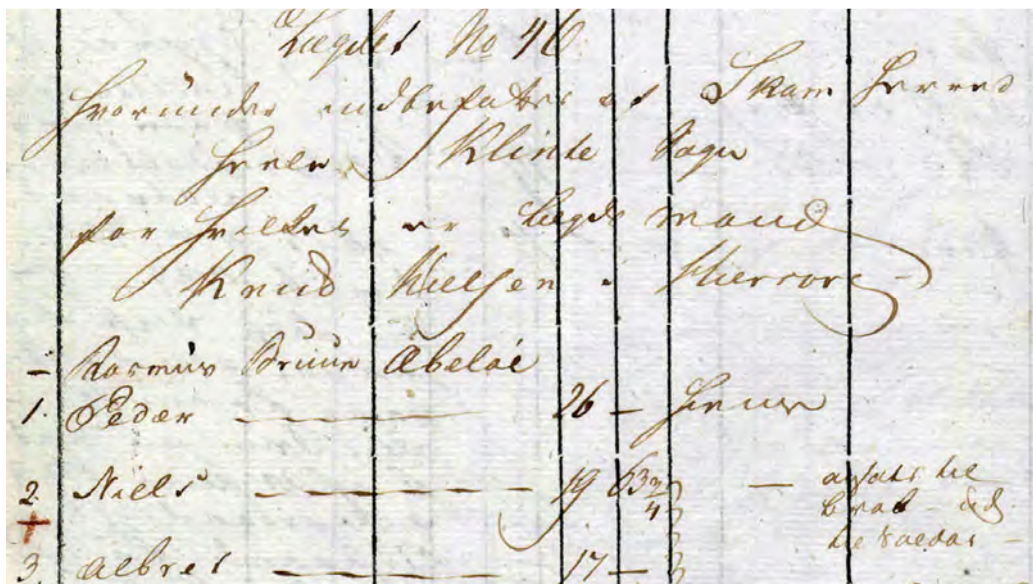 Lægdet No 46
Hvorunder indbefattes af Skam Herred
Heele Klinte Sogn
for hvilket er Lægds mand
Knud Nielsen i
— Rasmus Bruun Æbelöe
1. Peder — 26 — hiemme
2. Niels — 19 63 3/4 —
3. Albret — 17 —